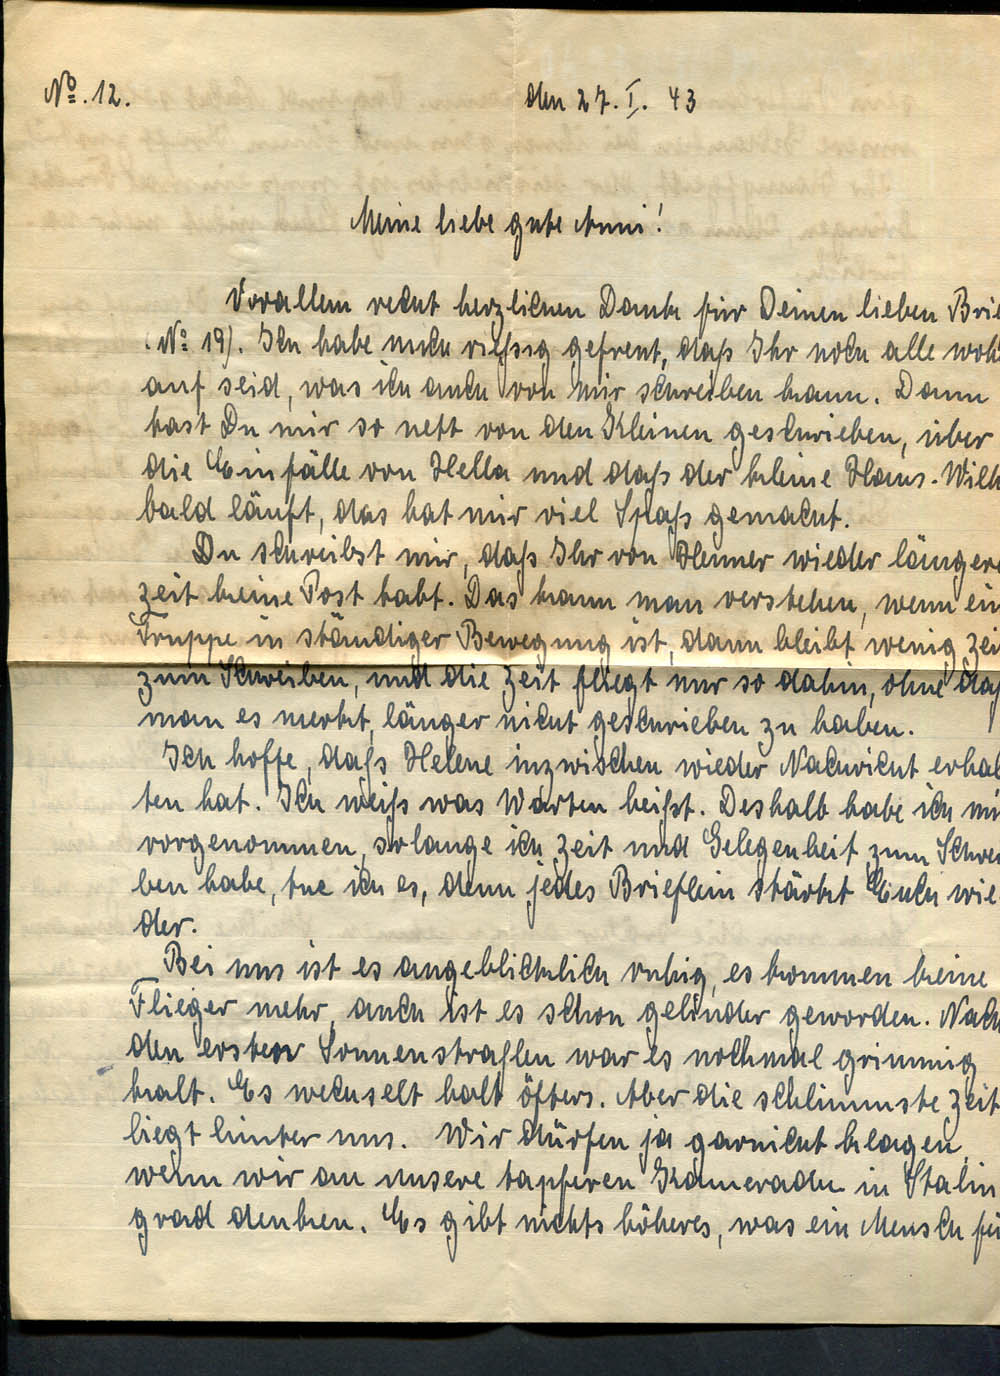 No. 12.
den 27. I. 43
Meine liebe gute Anni!
Vorallem recht herzlichen Dank für Deinen lieben Brie
(No 19). Ich habe mich rießig gefreut, daß Ihr noch alle wohl
auf seid, was ich auch von mir schreiben kann. Dann
hast Du mir so nett von den Kleinen geschrieben, über
die Einfälle von Hella und daß der kleine Hans-Wilh
bald läuft, das hat mir viel Spaß gemacht.
Du schreibst mir, daß Ihr von Henner wieder längere
zeit keine Post habt. Das kann man verstehen, wenn ein
Truppe in ständiger Bewegung ist, dann bleibt wenig zei
zum Schreiben, und die zeit fliegt nur so dahin, ohne daß
man es merkt, länger nicht geschrieben zu haben.
Ich hoffe, daß Helene inzwischen wieder Nachricht erhal
ten hat. Ich weiß was Warten heißt. Deshalb habe ich mi
vorgenommen, solange ich zeit und Gelegenheit zum Schrei
ben habe, tue ich es, denn jedes Brieflein stärkt Euch wie
der.
Bei uns ist es augeblicklich ruhig, es kommen keine
Flieger mehr, auch ist es schon gelinder geworden. Nach
den ersten Sonnenstrahlen war es nochmal grimmig
kalt. Es wechselt halt öfters. Aber die schlimmste zeit
liegt hinter uns. Wir dürfen ja garnicht klagen,
wenn wir an unsere tapferen Kameraden in Stalin
grad denken. Es gibt nichts höheres, was ein Mensch fü